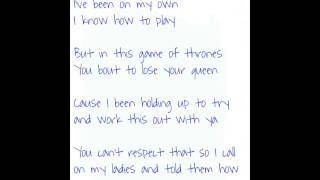 I've been on my own
I know how to play
But in this game of thrones
You bout to lose your queen
Cause I been holding up to try
and work this out with ya
You can't respect that so I call
on my ladies and told them how